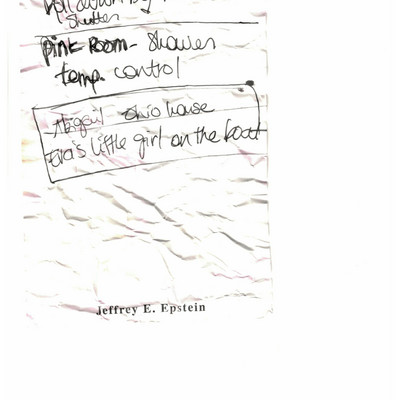 Roll down
Shutter
Pink Room - Shower
temp. control
Ohio house
Eva's little girl on the boat
Jeffrey E. Epstein